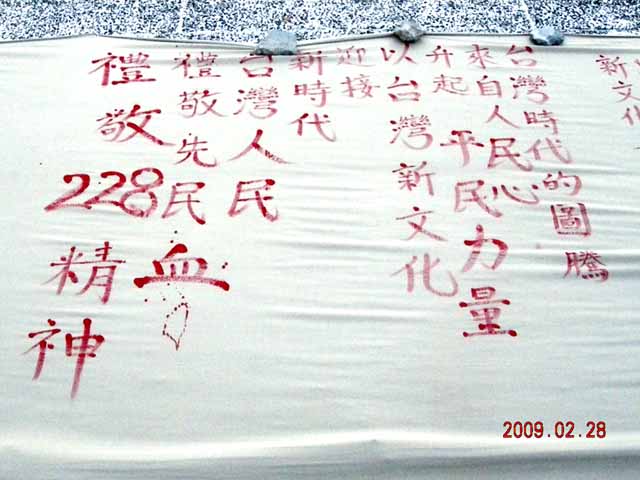 新文化
台灣時代的圖騰
來自人民心
升起平民力量
以台灣新文化
迎接
新時代
台灣人民
禮敬先民血
禮敬228精神
2009.02.28